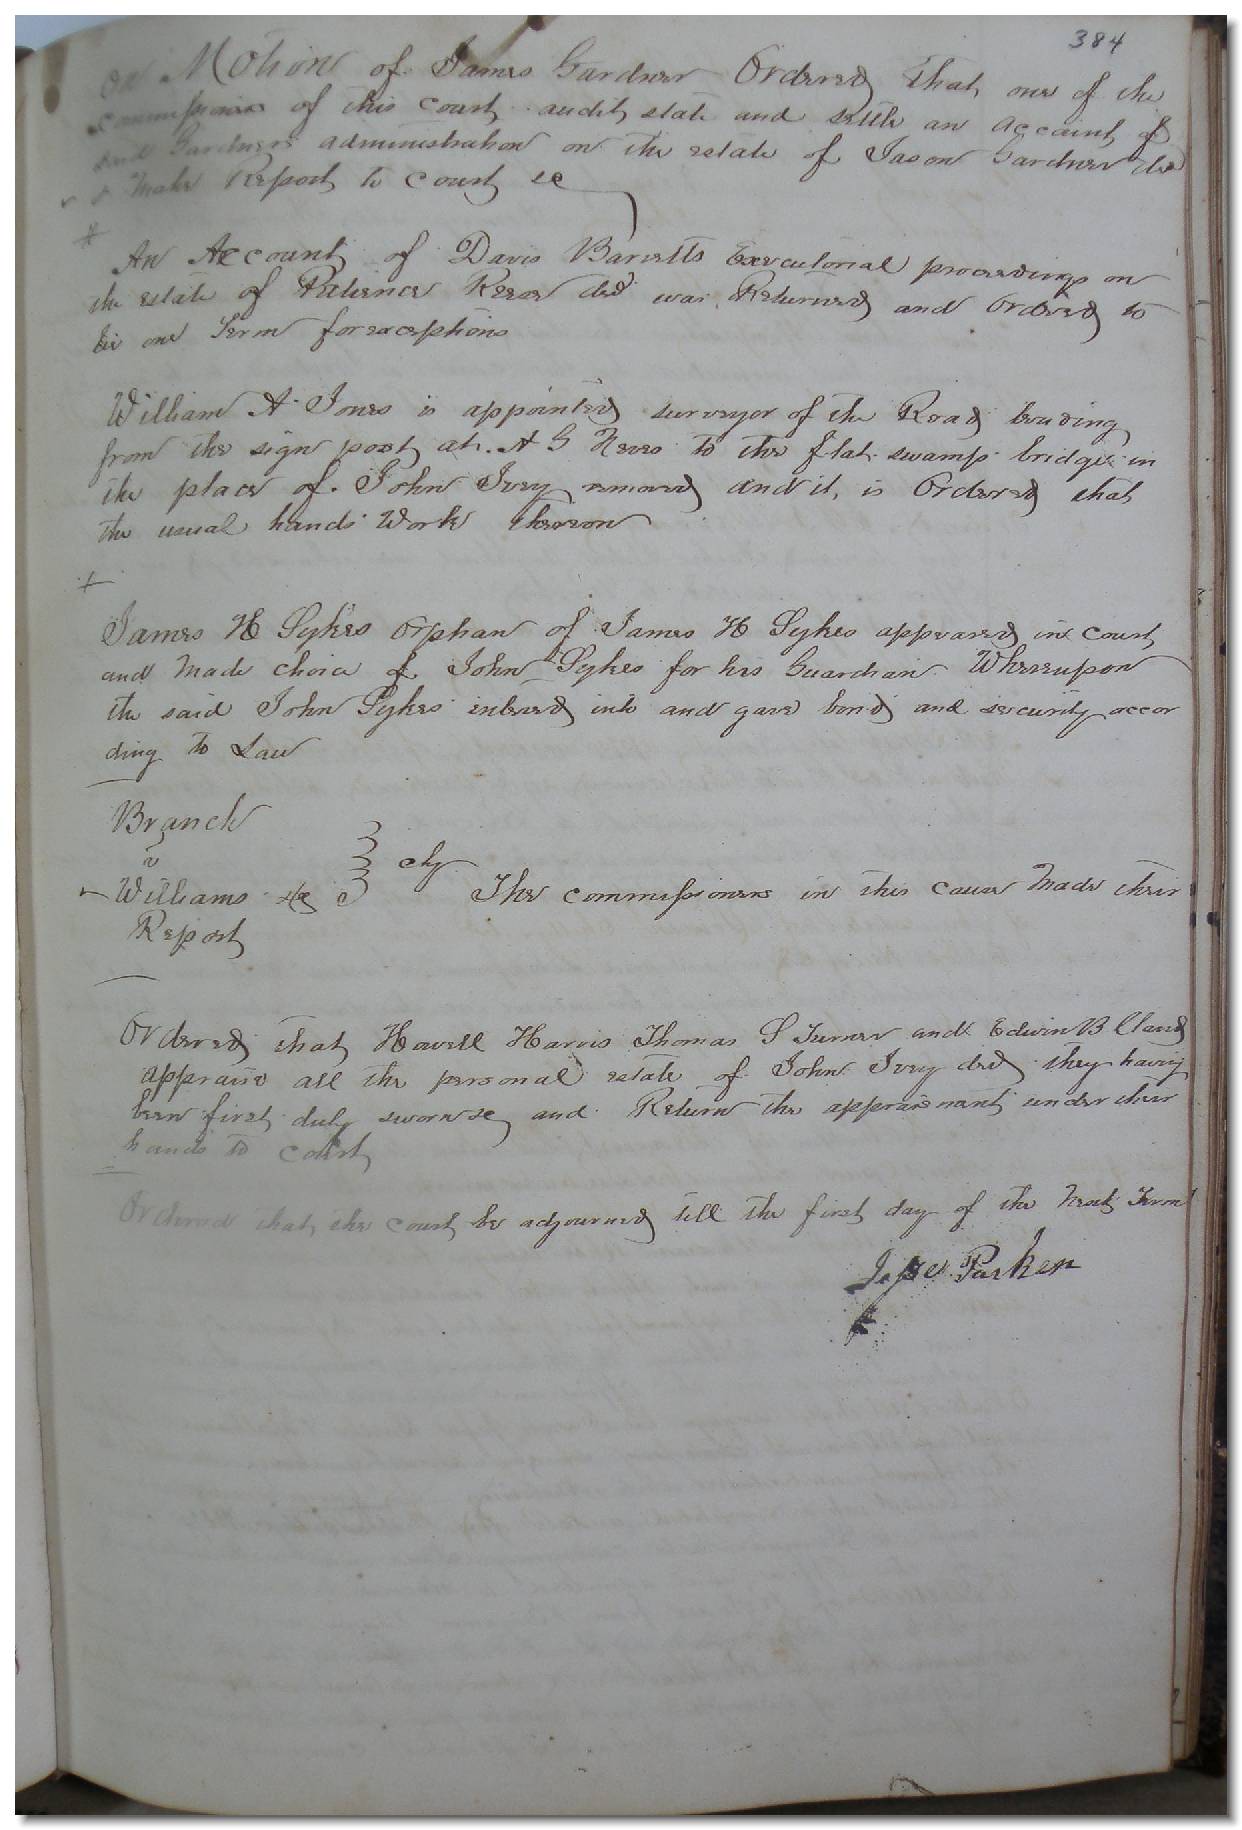 384
On Motion of James Gardner Ordered that one of the
commissioners of this court audit state and settle an account of
said Gardners administration on the estate of Jason Gardner decd
& make Report to court &c
An Account of Davis Barretts Executorial proceedings on
the estate of Patience Reese decd was Returned and Ordered to
lie one Term for exceptions
William A Jones is appointed surveyor of the Road leading
from the sign post at A G to the flat swamp bridge in
the place of John Ivey removed and it is Ordered that
the usual hands Work thereon
James H Sykes Orphan of James H Sykes appeared in Court
and made choice of John Sykes for his Guardian Whereupon
the said John Sykes entered into and gave bond and security accor
ding to Law
Branch
v
Williams &c chy The commissioners in this cause made their
Report
Ordered that Howell Harris Thomas S Turner and Edwin B Claud
appraise all the personal estate of John Ivey decd they having
been first duly sworn &c and Return the appraisment under their
hands to court
Ordered that the court be adjourned till the first day of the next Term
Jesse Parker